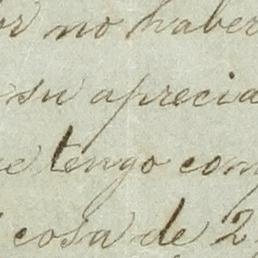 or no haber
su aprecia
e tengo com
cosa de 2